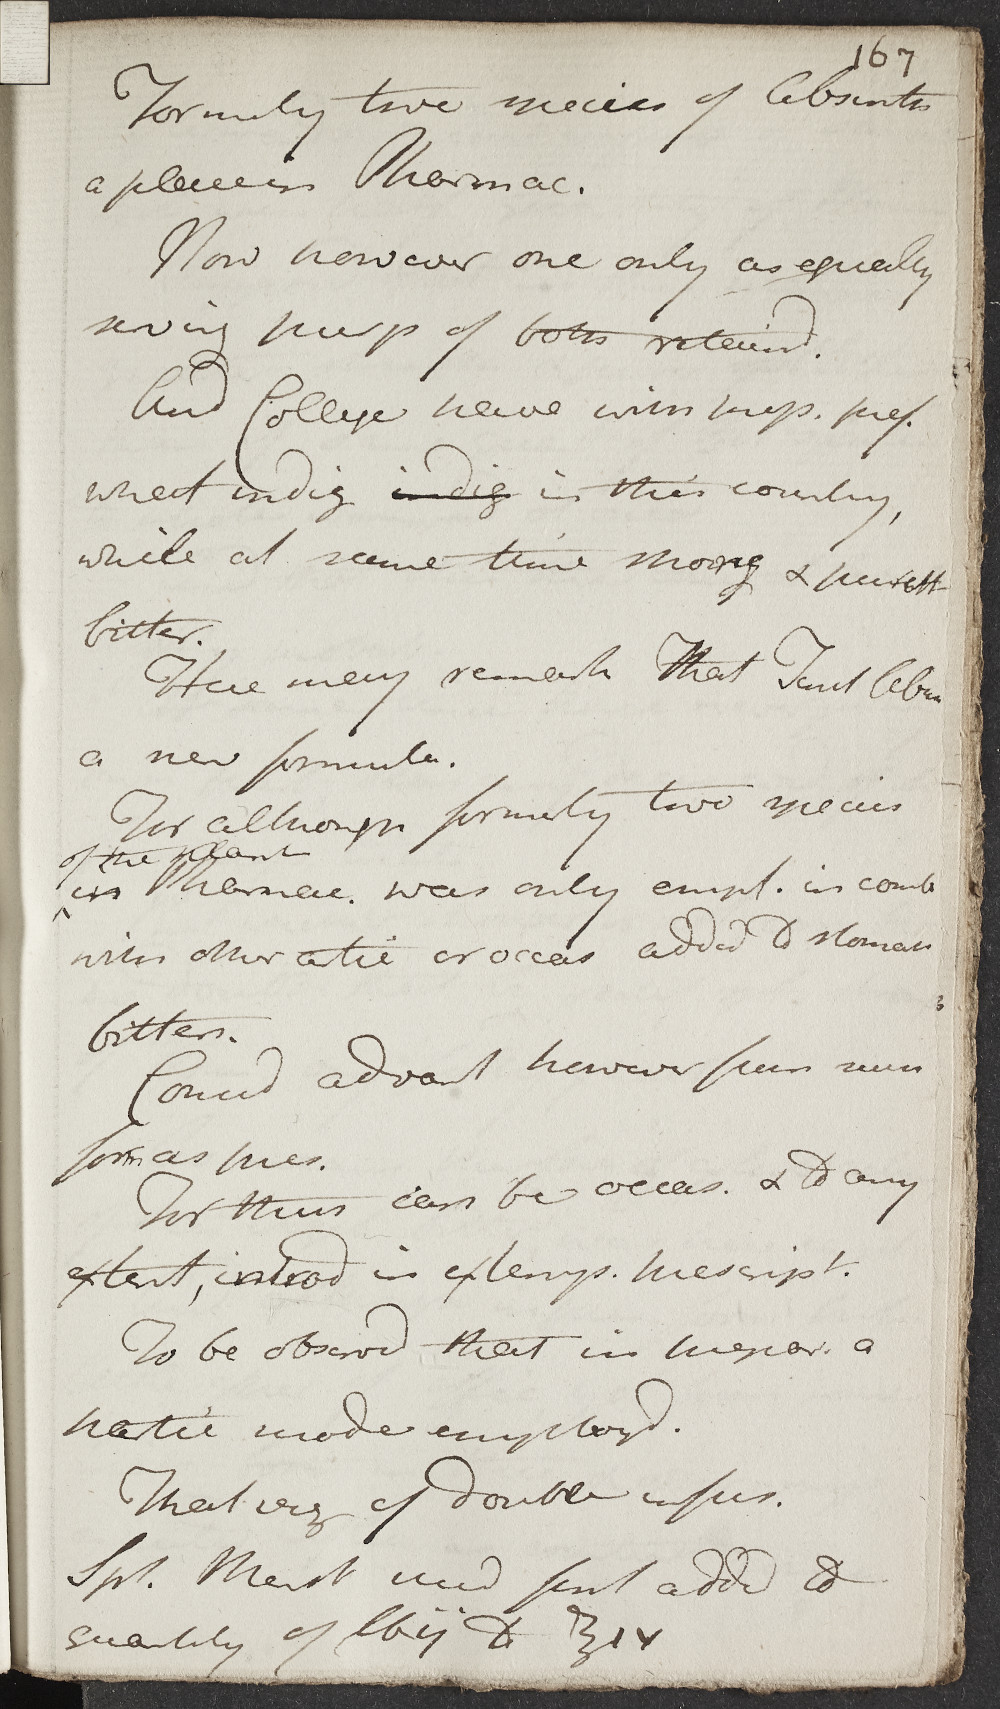 167
Formerly two species of Absinth
a place in Pharmac.
Now however one only as equally
serving purp of both retaind.
And College have with prop. pref.
what indig indig in this country,
while at same time strong & purest
bitter.
Here may remark that Tinct Absin
a new formula.
For although formerly two species
of the plant
in Pharmac. was only empl. in comb
with other artic or occas added to stomach
bitters.
Consid advant however from such
form as pres.
For thus can be occas. & to any
extent, introd in extemp. prescript.
To be observd that in prepar. a
partic mode employd.
That viz of double infus.
Spt. Menst used first added to
quantity of lbij to ℥iv